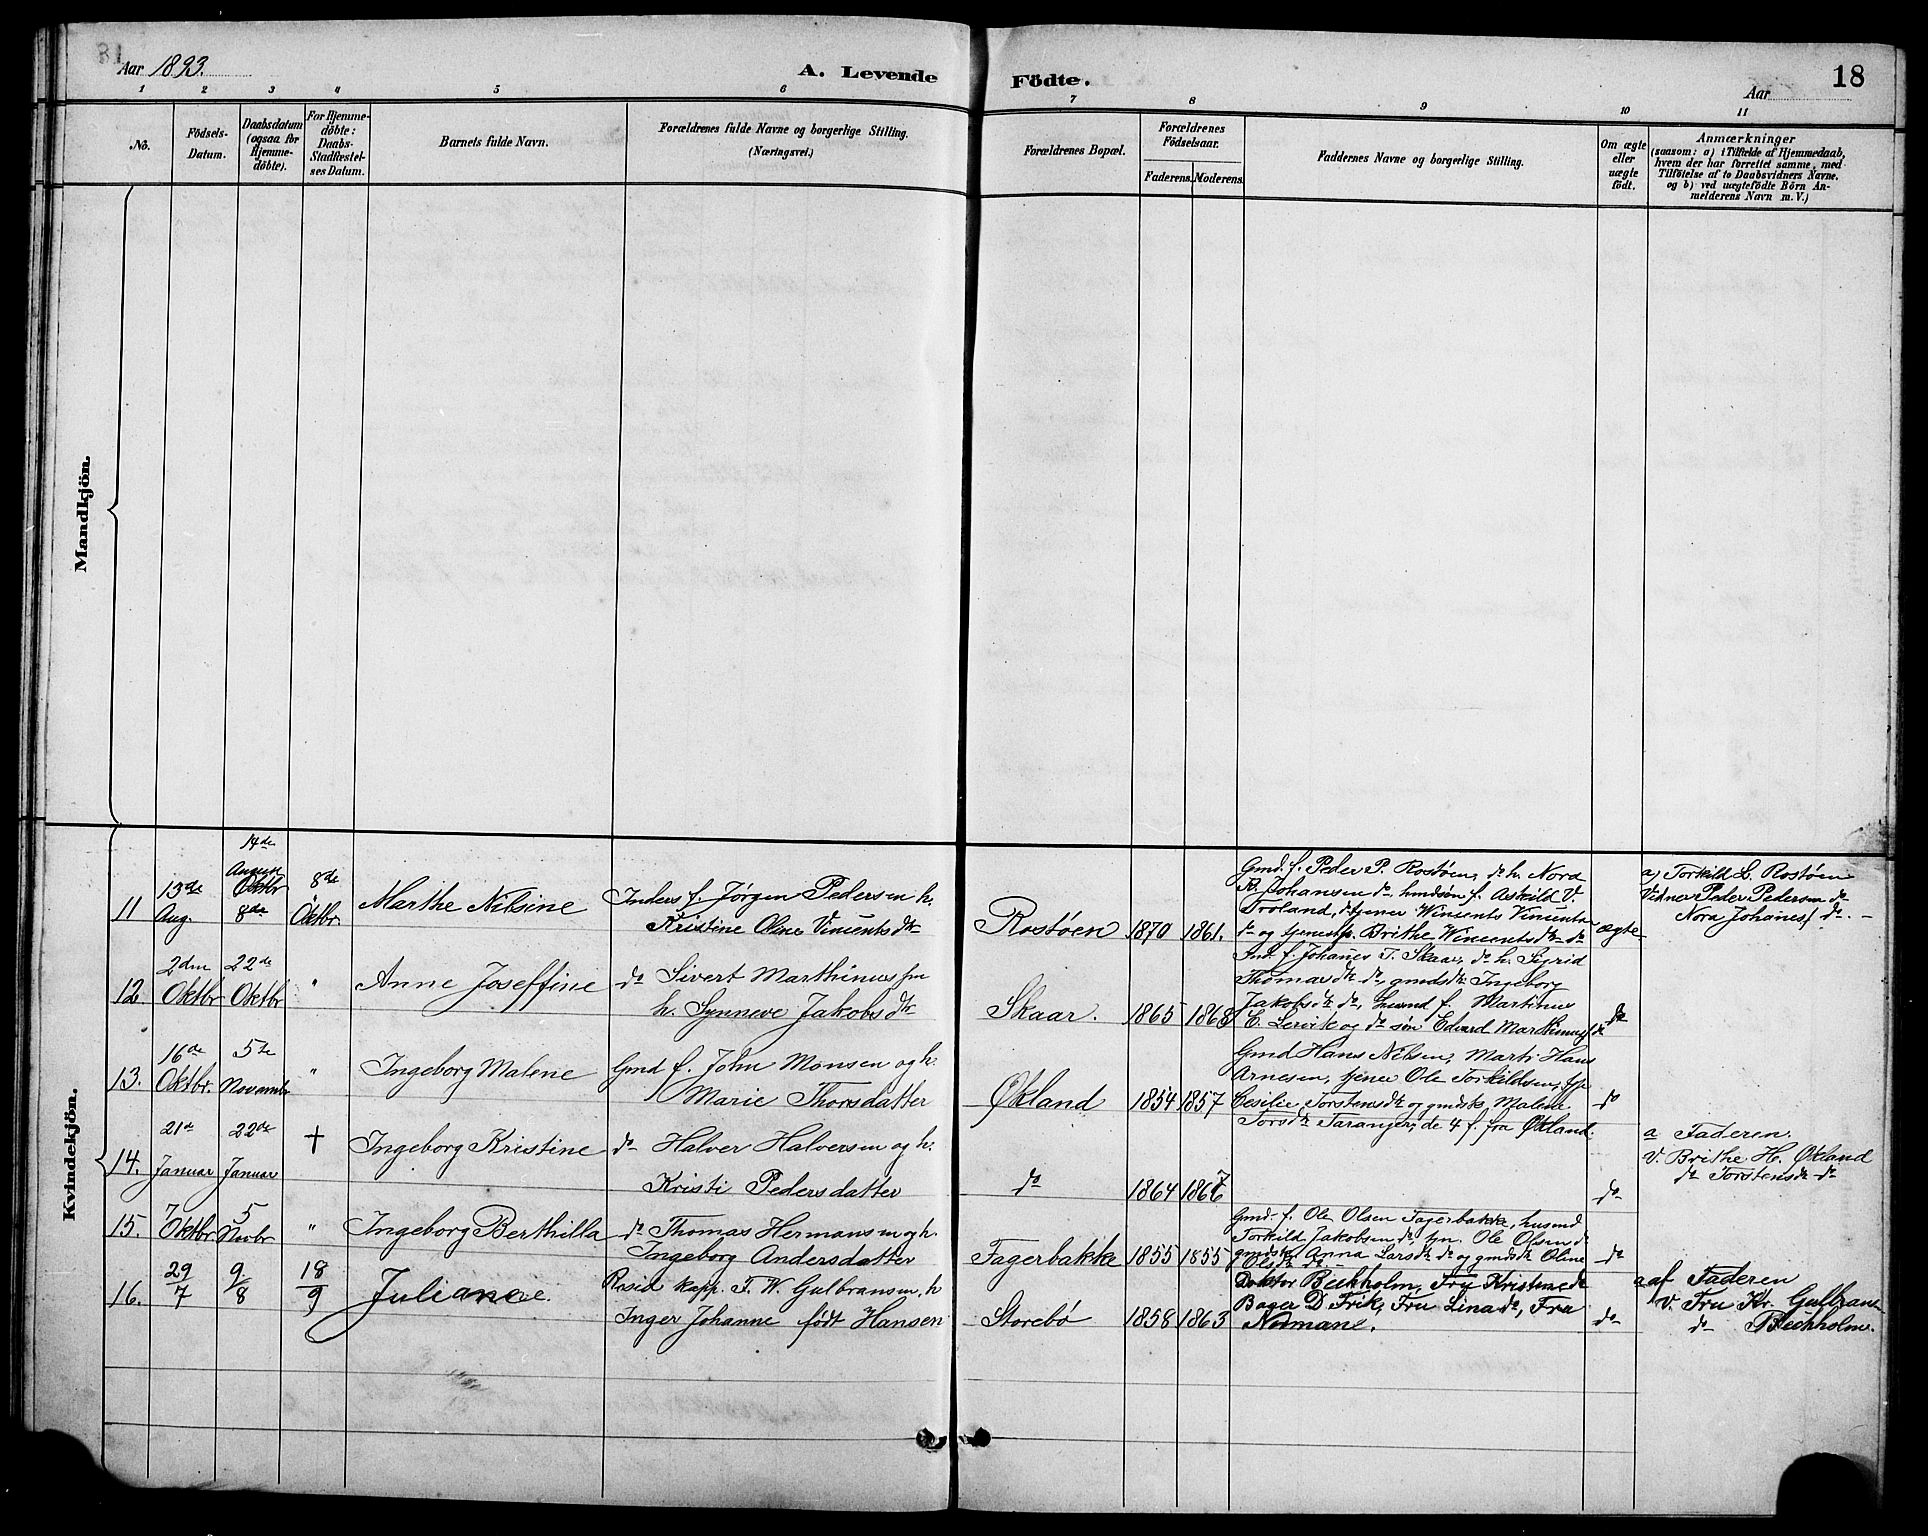 Aar 1893.
A. Levende Födte.
Aar
18
1 2 3 4 5 6 7 8 9 10 11
No.
Födsels-
Datum.
Daabsdatum
(ogsaa for
Hjemme-
döbte).
For Hjemme-
döbte:
Daabs-
Stadfæstel-
ses Datum.
Barnets fulde Navn.
Forældrenes fulde Navne og borgerlige Stilling.
(Næringsvei.)
Forældrenes Bopæl.
Forældrenes
Födselsaar.
Faderens. Moderens.
Faddernes Navne og borgerlige Stilling.
Om ægte
eller
uægte
födt.
Anmærkninger
(saasom: a) i Tilfælde af Hjemmedaab,
hvem der har forrettet samme, med
Tilföielse af to Daabsvidners Navne,
og b) ved uægtefödte Börn An-
melderens Navn m. V.)
Mandkjön.
Kvindekjön.
11
13de
Aug.
14de
August
Oktbr
8de
8de
Oktbr.
Marthe Nilsine
Inders f. Jørgen Pedersen h.
Kristine Oline Vincentsdtr
Rostøen
1870
1861.
Gmd. f. Peder P. Rostøen, do h. Nora
B. Johansen do, husmdsøn f. Askild V.
Troland, tjener Winsents Vinsents
do og Brithe Winsentsdtr do
ægte
a) Torkild L. Rostøen
Vidner Peder Pedersen do
Nora Johanes do. -
12.
2den
Oktbr
22de
Oktbr
"
Anne Joseffine
do Sivert Marthinussen
h. Synneve Jakobsdtr
Skaar.
1865
1868
f. Johanes T. Skaar, do h. Sigrid
Thomasdtr do, gmdsdtr Ingeborg
Jakobsdtr do, husmd f. Martinus
E. Lervik og do søn Edvard Marthinus
do
13.
16de
Oktbr.
5te
Novembr
"
Ingeborg Malene
Gmd f. John Monsen og h.
Marie Thorsdatter
Økland
1854
1857
Gmd Hans Nilsen, Marti Hans
Arnesen, tjener Ole Torkildsen,
Cesilie Torstensdtr og gmds Malene
Torsdtr Taranger, de 4 f. fra Økland.
do
14.
21de
Januar
22de
Januar
†
Ingeborg Kristine
do Halver Halversen og h.
Kristi Pedersdatter
do
1864
1867
do
a Faderen.
V. Brithe H. Økland
do Torstensdtr do
15.
7
Oktbr
5
Novbr
"
Ingeborg Berthilla
do Thomas Hermansen og h.
Ingeborg Andersdatter
Fagerbakke
1855
1855
Gmd. f. Ole Olsen Fagerbakke, husmd
Torkild Jakobsen do Ole Olsen do
gmdsk Anna Larsdtr do og gmdsdtr Oline
Olsdtr do -
do
16.
29/7
9/8
18/9
Juliane
Resid. kapp. T. W. Gulbransen, h
Inger Johanne født Hansen
Storebø
1858
1863
Doktor Beckholm, Fru Kristine do
Bager D. Frik, Fru Lina do, Fru
Normane.
do
a af Faderen
V. Fru Kr. Gulbransen
do Beckholm.